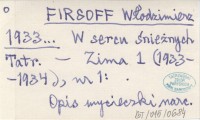 FIRSOFF Włodzimierz
1933... W sercu śnieżnych
Tatr. – Zima 1 (1933-
-1934), nr 1:
Opis wycieczki narc.
BJ/015/0634